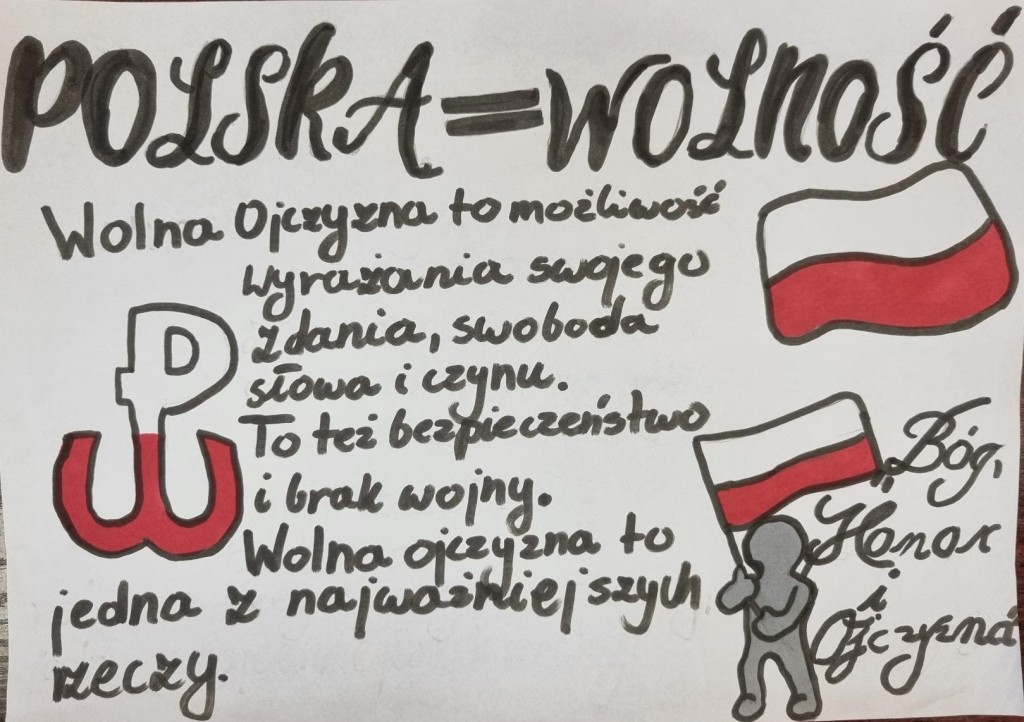 POLSKA = WOLNOŚĆ
Wolna Ojczyzna to możliwość
wyrażania swojego
zdania, swoboda
słowa i czynu.
To też bezpieczeństwo
i brak wojny.
Wolna ojczyzna to
jedna z najważniejszych
rzeczy.
„Bóg,
Honor
i
Ojczyzna"